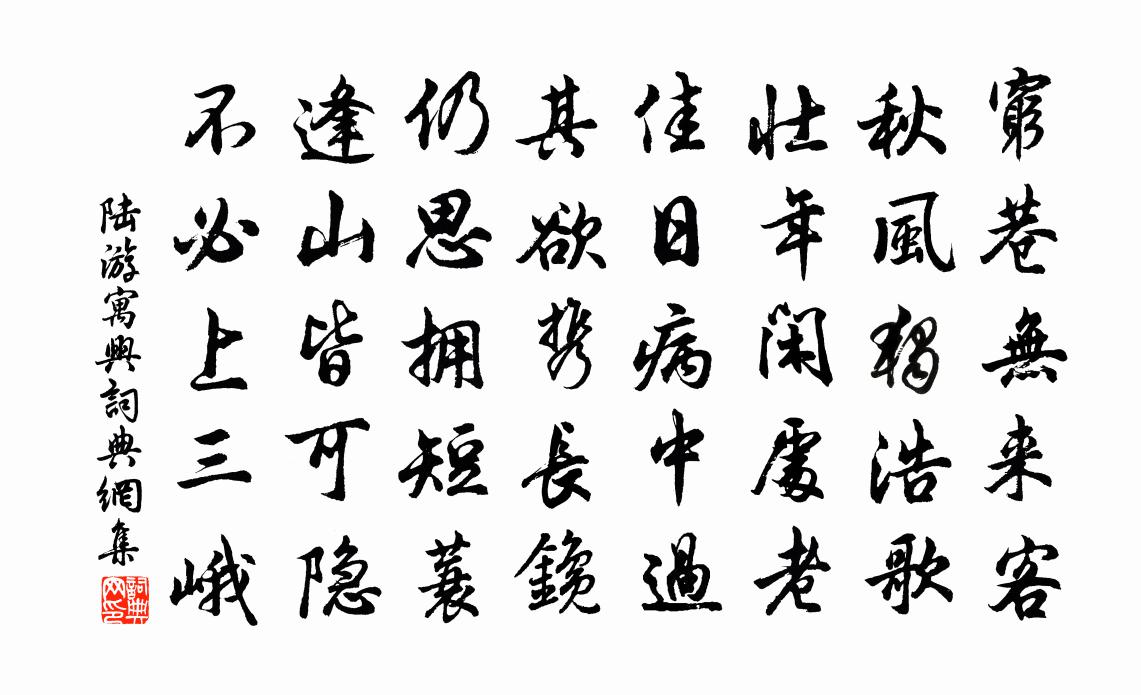 窮巷無来客
秋風獨浩歌
壯年閑處老
佳日病中過
其欲携長鑱
仍思拥短蓑
逢山皆可隐
不必上三峨
陆游寓興詞典網集
詞典网印